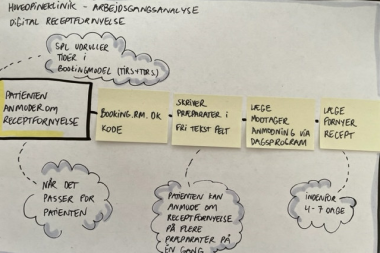 HOVEDPINEKLINIK - ARBEJDSGANGSANALYSE
DIGITAL RECEPTFORNYELSE
SPL UDRULLER
TIDER I
BOOKINGMODEL (TIRS+TORS)
PATIENTEN
ANMODER OM
RECEPTFORNYELSE
BOOKING.RM.DK
KODE
SKRIVER
PRÆPARATER I
FRI TEKST FELT
LÆGE
MODTAGER
ANMODNING VIA
DAGSPROGRAM
LÆGE
FORNYER
RECEPT
NÅR DET
PASSER FOR
PATIENTEN
PATIENTEN KAN
ANMODE OM
RECEPTFORNYELSE
PÅ FLERE
PRÆPARATER PÅ
ÉN GANG
INDENFOR
4-7 DAGE